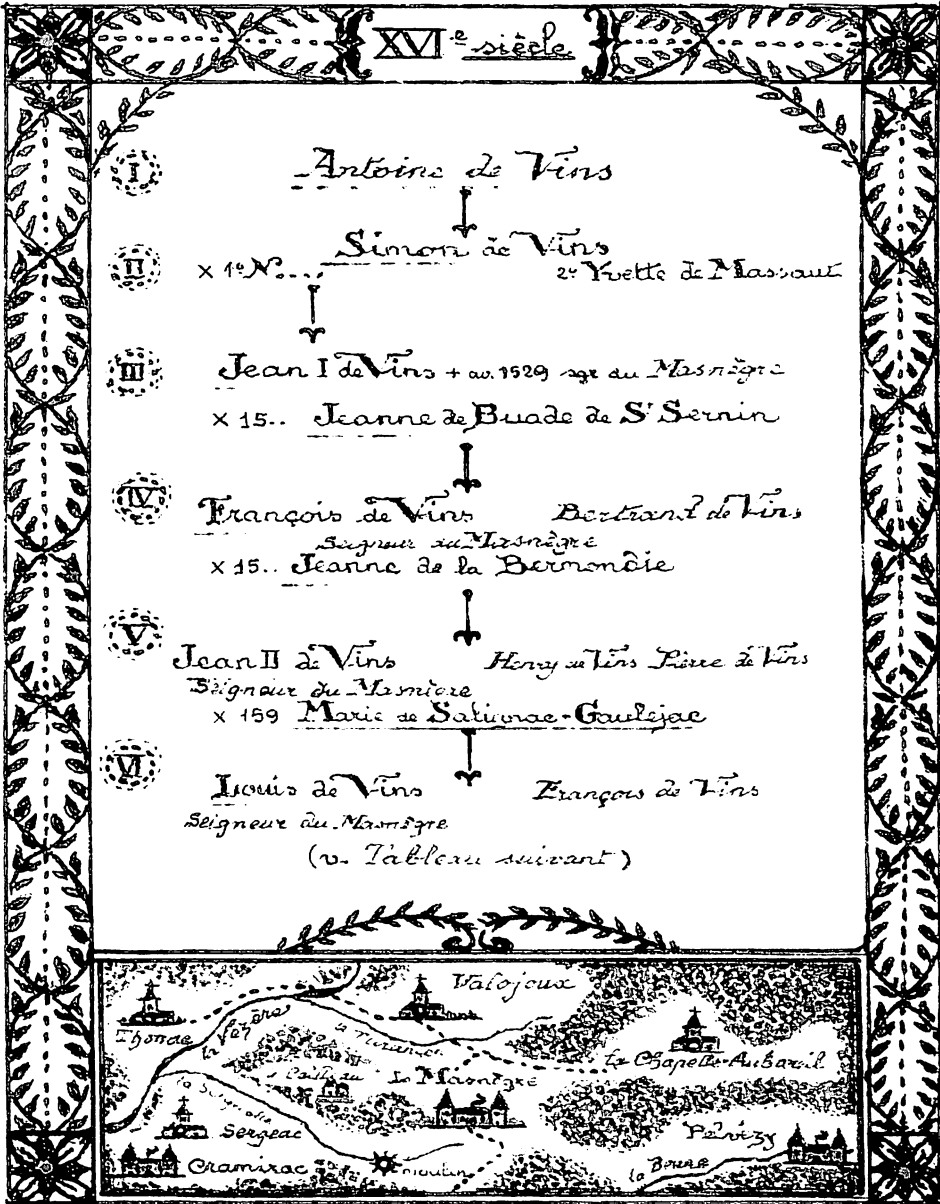 XVIe siècle
I Antoine de Vins
Simon de Vins
II × 1° N.... 2° Yvette de Massaut
III Jean I de Vins + av. 1529 sgr du Masnègre
× 15.. Jeanne de Buade de St Sernin
IV François de Vins Bertrand de Vins
Seigneur du Masnègre
× 15.. Jeanne de la Bermondie
V Jean II de Vins Henry de Vins Pierre de Vins
Seigneur du Masnègre
× 159 Marie de Salignac-Gaulejac
VI Louis de Vins François de Vins
Seigneur du Masnègre
(v. Tableau suivant)
Valojoux
Thonac
la Vézère
La Chapelle-Aubareil
Le Masnègre
Sergeac
Pelvézy
Cramirac
moulin
la Beune